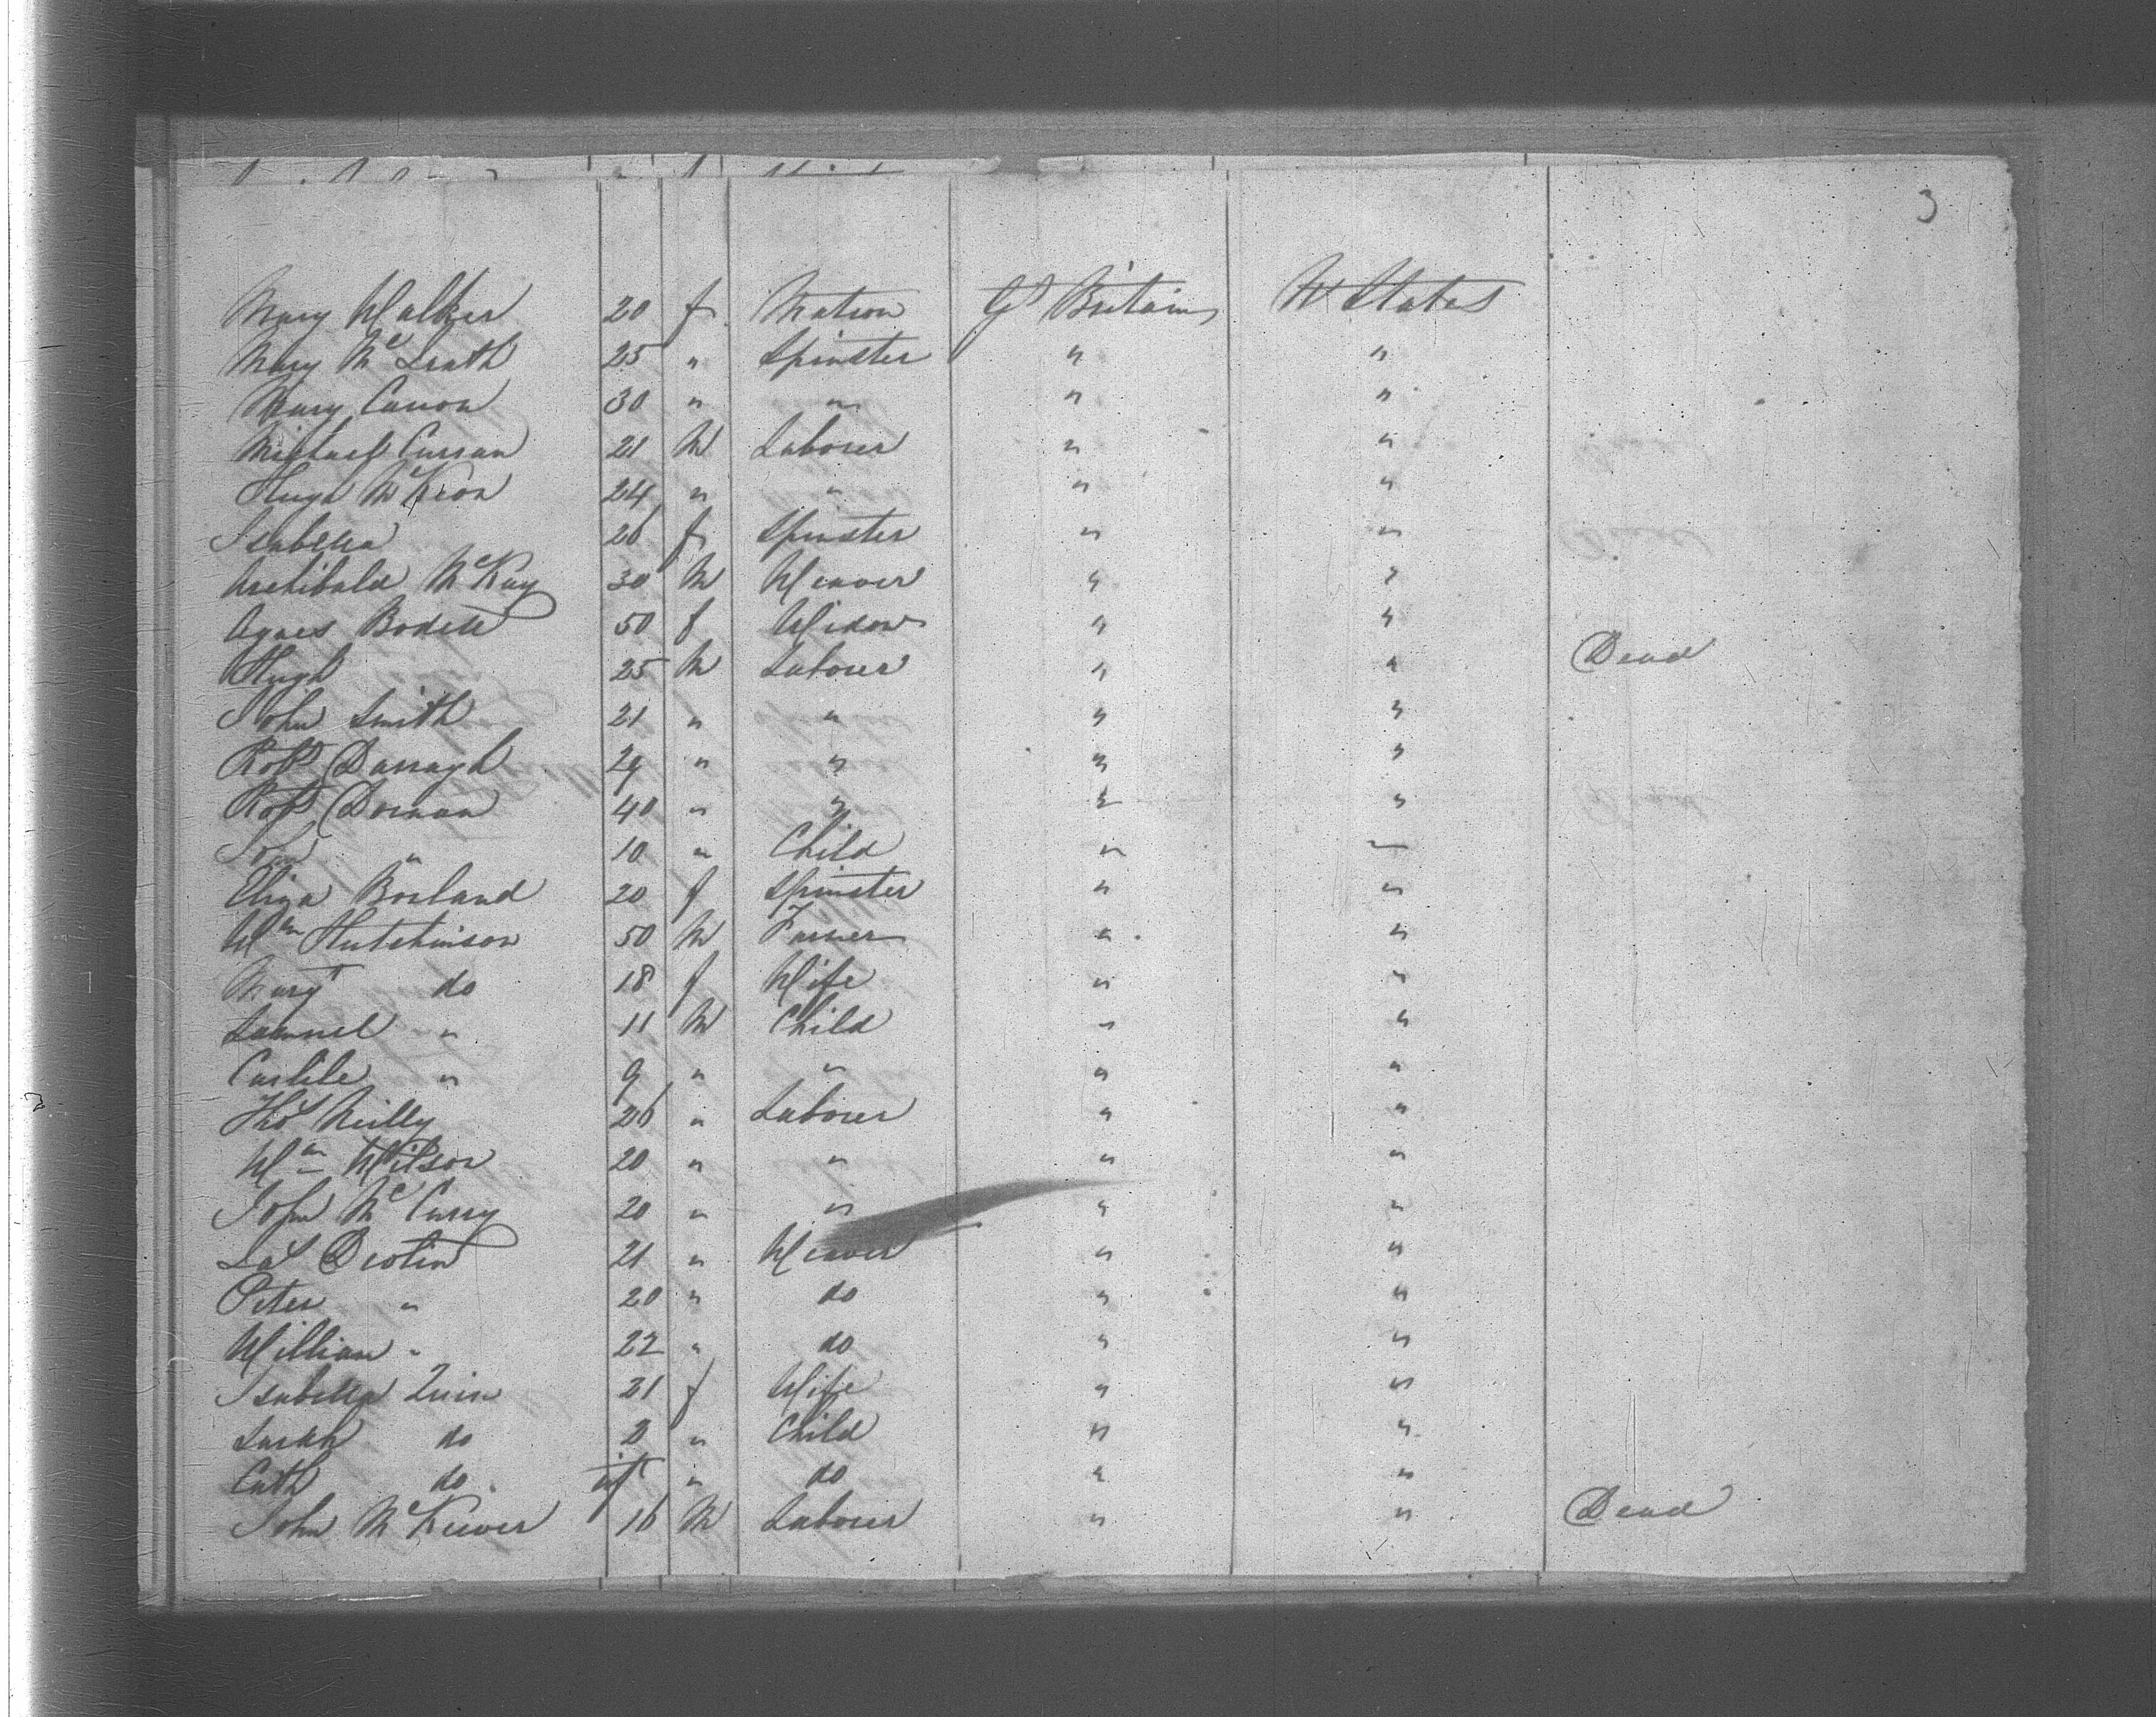 3
Mary Walker 20 f Matron Gt Britain U States
Mary McGrath 25 " Spinster " "
Mary Canon 30 " " " "
Michael Curran 21 M Labourer " "
Hugh McKeon 24 " " " "
Isabella 26 f Spinster " "
Archibald McKay 30 M Weaver " "
Agnes Bodell 50 f Widow " "
Hugh 25 M Labourer " " Dead
John Smith 21 " " " "
Robt Darragh 29 " " " "
Robt Dornan 40 " " " "
John " 10 " Child " "
Eliza Borland 20 f Spinster " "
Wm Hutchinson 50 M Farmer " "
Margt do 18 f Wife " "
Samuel " 11 M Child " "
Carlile " 9 " " " "
Thos Reilly 26 " Labourer " "
Wm Wilson 20 " " " "
John McCurry 20 " " " "
21 " Weaver " "
Peter " 20 " do " "
William " 22 " do " "
Isabella Quin 21 f Wife " "
Sarah do 2 " Child " "
Cath do inft " do " "
John McKeever 16 M Labourer " " Dead